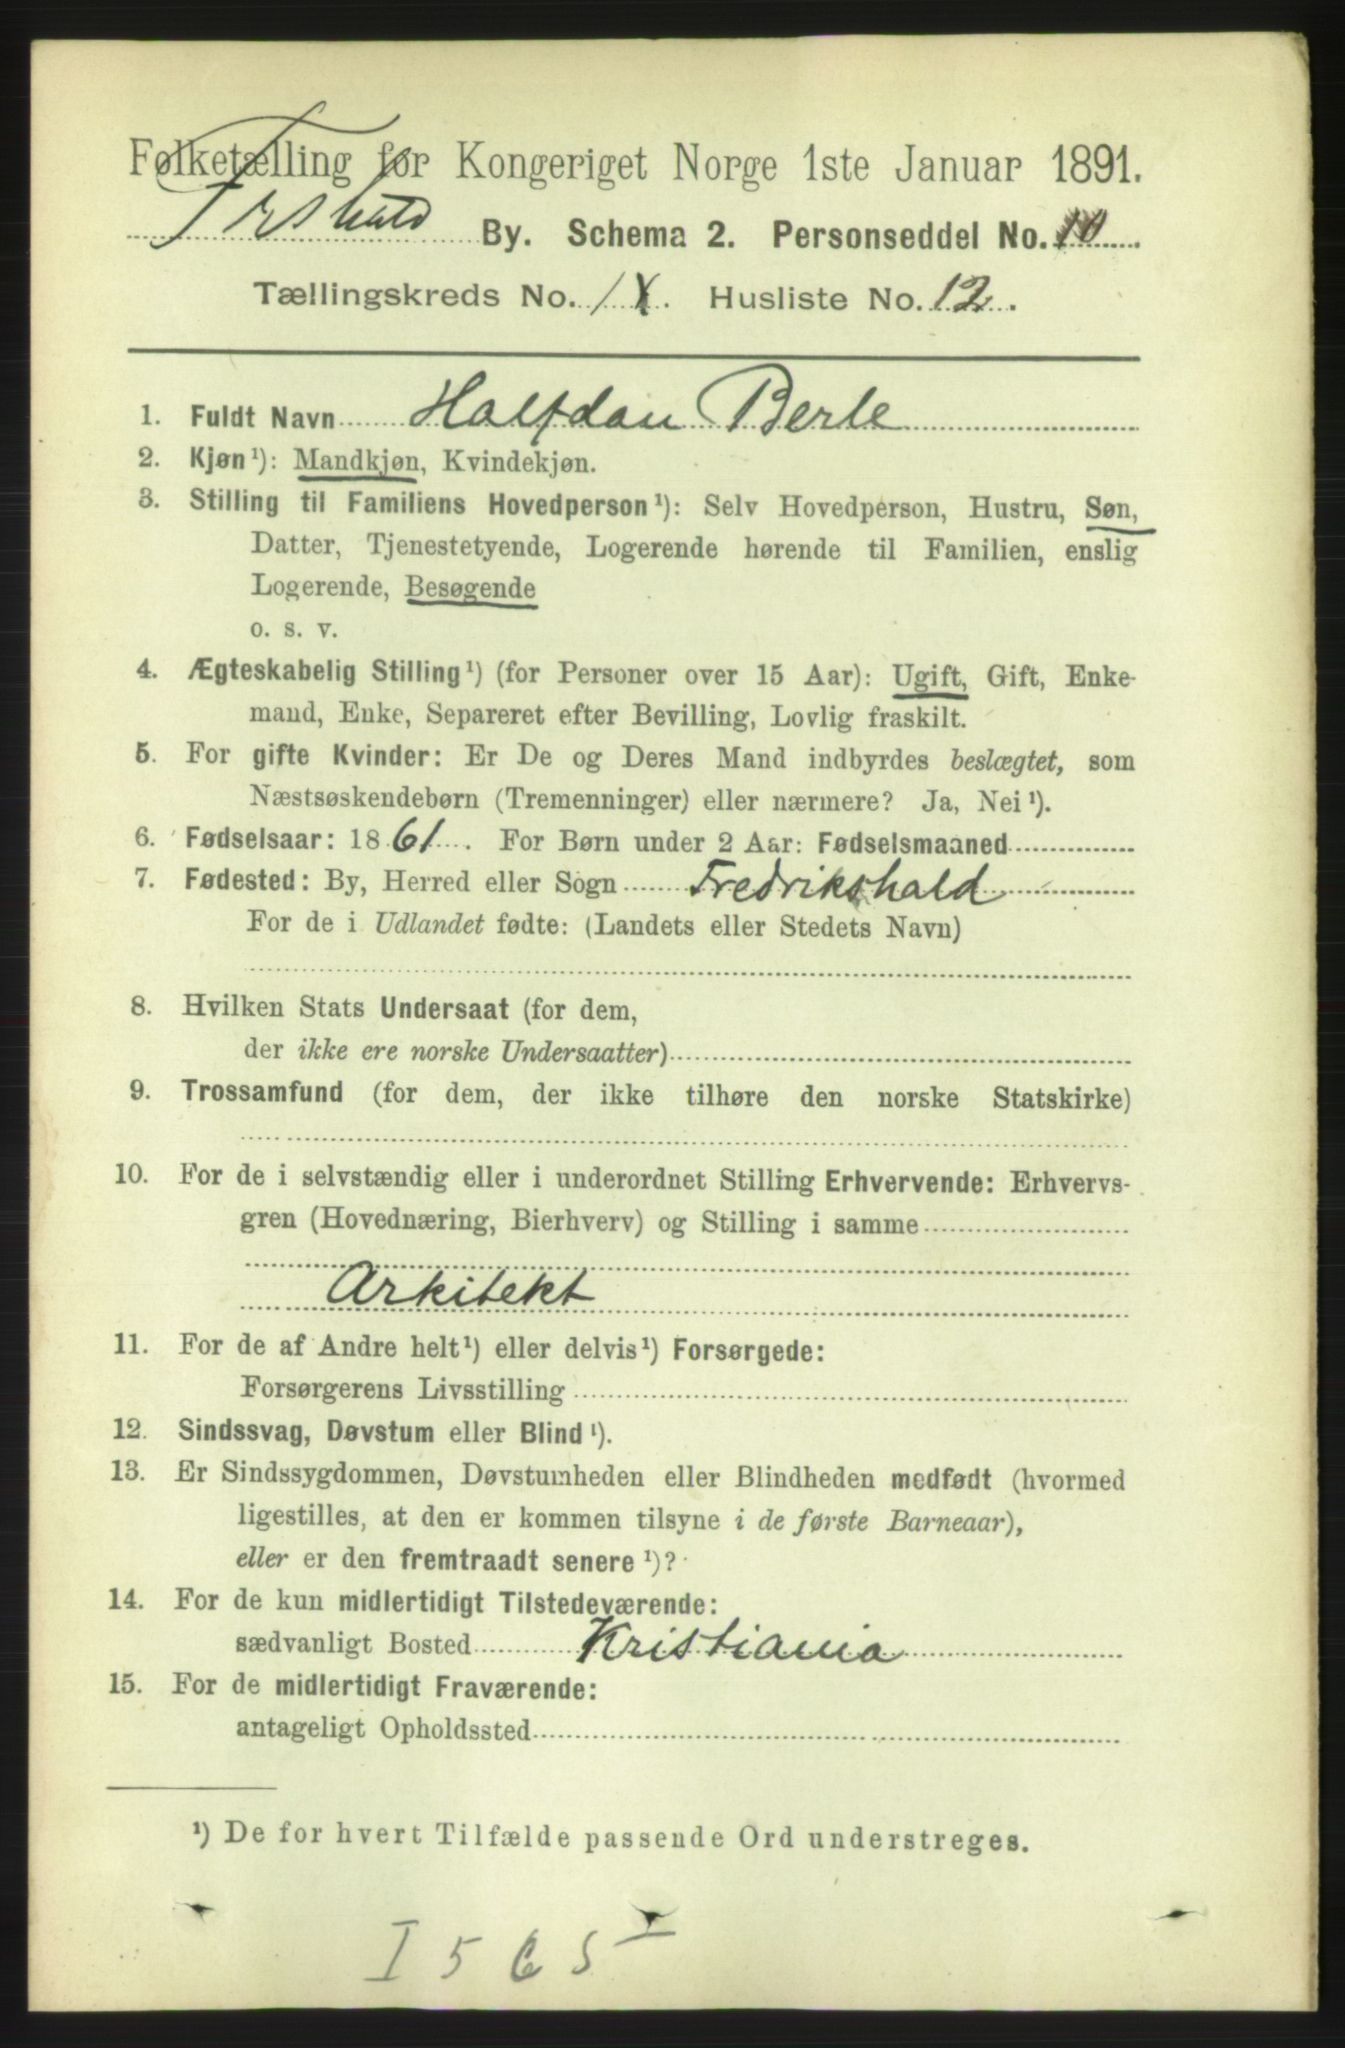 Folketælling for Kongeriget Norge 1ste Januar 1891.
Frshald By. Schema 2. Personseddel No. 10
Tællingskreds No. 1X. Husliste No. 12.
1. Fuldt Navn Halfdan Berle
2. Kjøn ¹): Mandkjøn, Kvindekjøn.
3. Stilling til Familiens Hovedperson ¹): Selv Hovedperson, Hustru, Søn,
Datter, Tjenestetyende, Logerende hørende til Familien, enslig
Logerende, Besøgende
o. s. v.
4. Ægteskabelig Stilling ¹) (for Personer over 15 Aar): Ugift, Gift, Enke-
mand, Enke, Separeret efter Bevilling, Lovlig fraskilt.
5. For gifte Kvinder: Er De og Deres Mand indbyrdes beslægtet, som
Næstsøskendebørn (Tremenninger) eller nærmere? Ja, Nei ¹).
6. Fødselsaar: 1861. For Børn under 2 Aar: Fødselsmaaned
7. Fødested: By, Herred eller Sogn Fredrikshald
For de i Udlandet fødte: (Landets eller Stedets Navn)
8. Hvilken Stats Undersaat (for dem,
der ikke ere norske Undersaatter)
9. Trossamfund (for dem, der ikke tilhøre den norske Statskirke)
10. For de i selvstændig eller i underordnet Stilling Erhvervende: Erhvervs-
gren (Hovednæring, Bierhverv) og Stilling i samme
Arkitekt
11. For de af Andre helt ¹) eller delvis ¹) Forsørgede:
Forsørgerens Livsstilling
12. Sindssvag, Døvstum eller Blind ¹).
13. Er Sindssygdommen, Døvstumheden eller Blindheden medfødt (hvormed
ligestilles, at den er kommen tilsyne i de første Barneaar),
eller er den fremtraadt senere ¹)?
14. For de kun midlertidigt Tilstedeværende:
sædvanligt Bosted Kristiania
15. For de midlertidigt Fraværende:
antageligt Opholdssted
¹) De for hvert Tilfælde passende Ord understreges.
I 565 I